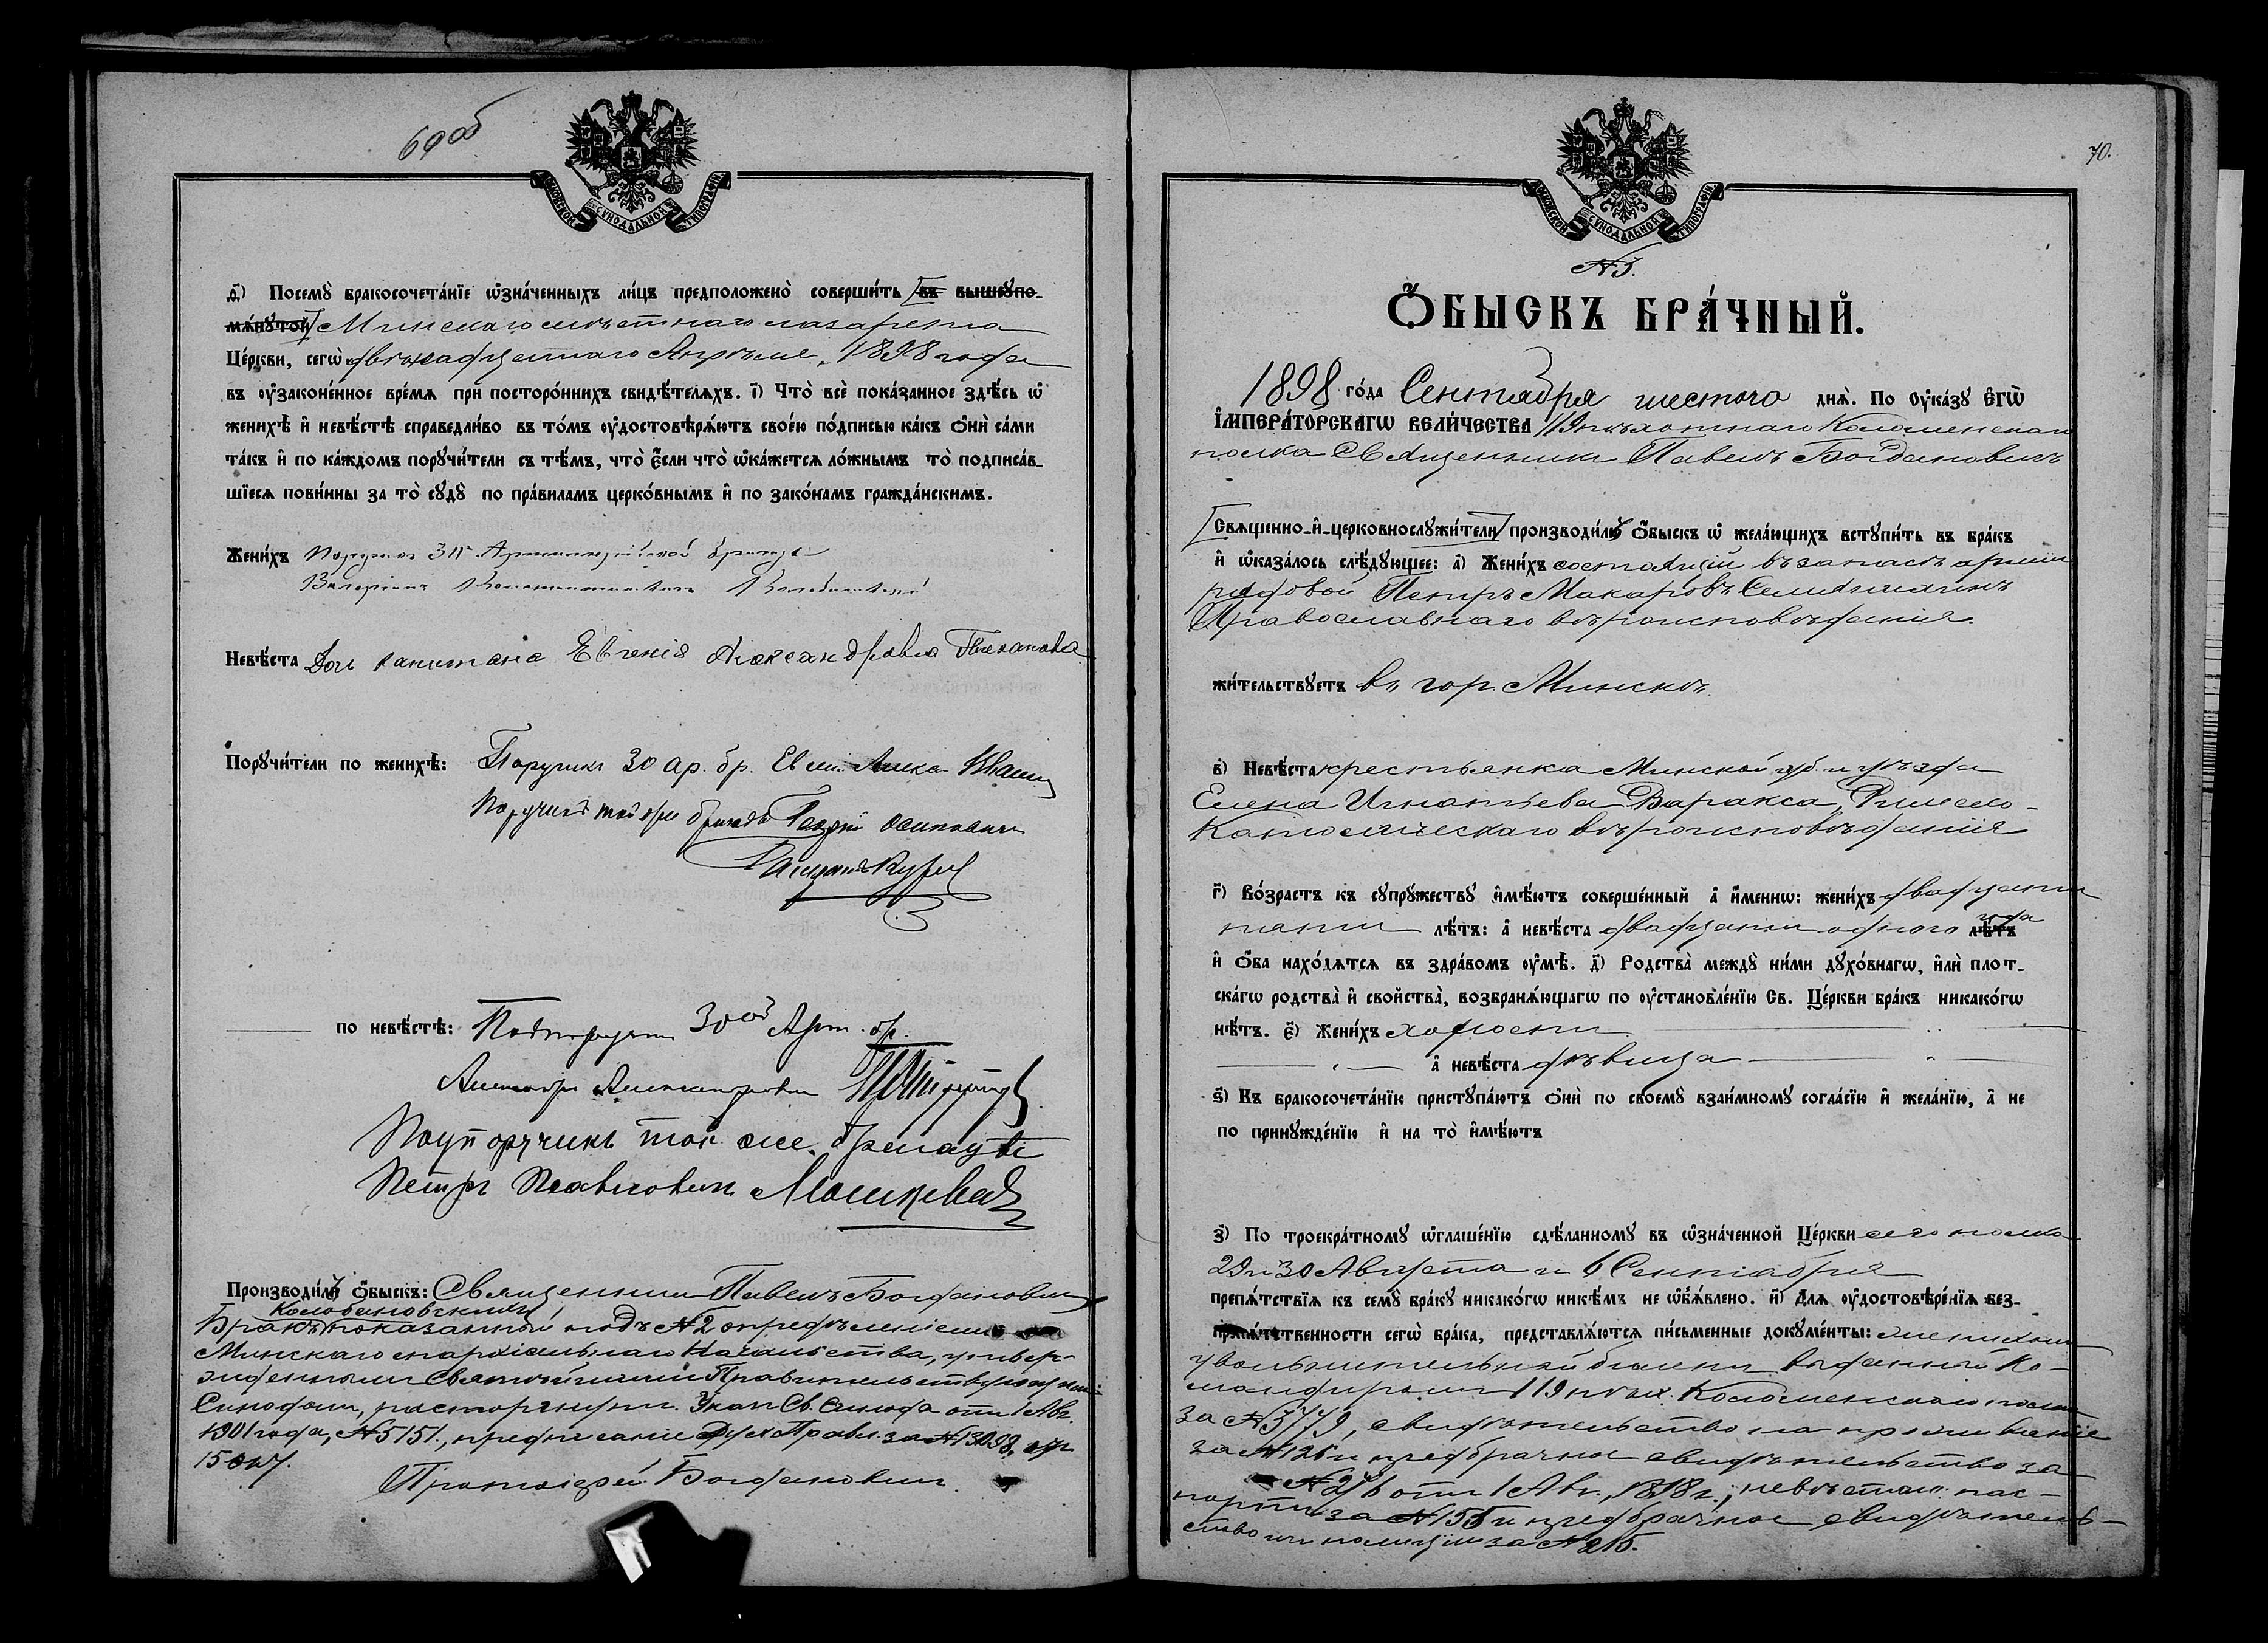 69 об
МОСКОВСКОЙ СУНОДАЛЬНОЙ ТИПОГРАФІИ
ѳ҃) Посемꙋ̀ бракосочета́нїе ѡ҆зна́ченныхъ ли́цъ предположено̀ соверши́ть въ вышеꙋпо-
мѧ́нꙋтой Минскаго мѣстнаго лазарета
Це́ркви, сегѡ̀ двѣнадцатаго Апрѣля, 1898 года
въ ᲂу҆законе́нное вре́мѧ при посторо́ннихъ свидѣ́телѧхъ. і҃) Что̀ всѐ пока́занное здѣ́сь ѡ҆
женихѣ̀ и҆ невѣ́стѣ справедли́во въ то́мъ ᲂу҆достовѣрѧ́ютъ свое́ю по́дписью ка́къ ѻ҆нѝ са́ми
та́къ и҆ по ка́ждомъ порꙋчи́тели съ тѣ́мъ, что̀ є҆́сли что̀ ѡ҆ка́жетсѧ ло́жнымъ то̀ подписа́в-
шїесѧ пови́нны за то̀ сꙋдꙋ̀ по пра́виламъ церко́внымъ и҆ по зако́намъ гражда́нскимъ.
Жени́хъ Поручикъ 30й Артиллерійской бригады
Валеріанъ Константиновичъ
Невѣ́ста Дочь капитана Евгенія Александровна Плеханова
Порꙋчи́тели по женихѣ̀: Поручикъ 30 ар. бр.
Поручикъ той же бригады Осиповичъ
по невѣ́стѣ: Подпоручикъ 30ой Арт. бр.
Александровичъ
Подпоручикъ той же бригады
Петръ Павловичъ
Производи́лъ ѻ҆́быскъ: Священникъ Павелъ Богдановичъ
Колобановскихъ
Бракъ показанный подъ №2 опредѣленіемъ
Минскаго епархіальнаго Начальства, утвер-
жденнымъ Святѣйшимъ Правительствующимъ
Синодомъ, расторгнутъ. Указъ Св. Синода отъ 1 Авг.
1901 года, №5151, предписаніе Дух. Правл. за №13098,
Протоіерей Богдановичъ
70.
МОСКОВСКОЙ СУНОДАЛЬНОЙ ТИПОГРАФІИ
№3.
Ѻ҆́БЫСКЪ БРА́ЧНЫЙ.
1898 го́да Сентября шестого днѧ̀. По ᲂу҆ка́зꙋ є҆гѡ̀
і҆мпера́торскагѡ вели́чества 119 пѣхотнаго Коломенскаго
полка Священникъ Павелъ Богдановичъ
Свѧщенно-и҆-церковнослꙋжи́тели производи́лъ ѻ҆́быскъ ѡ҆ жела́ющихъ встꙋпи́ть въ бра́къ
и҆ ѡ҆каза́лось слѣ́дꙋющее: а҃) Жени́хъ состоящій въ запасѣ арміи
рядовой Петръ Макаровъ
Православнаго вѣроисповѣданія.
жи́тельствꙋетъ въ гор. Минскѣ.
в҃) Невѣ́ста крестьянка Минской губ. и уѣзда
Елена Игнатьева Варакса, Римско-
Католическаго вѣроисповѣданія
г҃) Во́зрастъ къ сꙋпрꙋ́жествꙋ и҆мѣ́ютъ соверше́нный а҆̀ и҆́меннѡ: жени́хъ двадцати
пяти лѣ́тъ: а҆̀ невѣ́ста двадцати одного лѣ́тъ года
и҆ ѻ҆́ба нахо́дѧтсѧ въ здра́вомъ ᲂу҆мѣ̀. д҃) Родства̀ междꙋ̀ ни́ми дꙋхо́внагѡ, и҆лѝ пло́т-
скагѡ родства̀ и҆ сво́йства̀, возбранѧ́ющагѡ по ᲂу҆становле́нїю Св. Це́ркви бра́къ никако́гѡ
нѣ́тъ. є҃) Жени́хъ холостъ
а҆̀ невѣ́ста дѣвица
ѕ҃) Къ бракосочета́нїю пристꙋпа́ютъ ѻ҆нѝ по своемꙋ̀ взаи́мномꙋ согла́сїю и҆ жела́нїю, а҆̀ не
по принꙋжде́нїю и҆ на то̀ и҆мѣ́ютъ
з҃) По троекра́тномꙋ ѡ҆глаше́нїю сдѣ́ланномꙋ въ ѡ҆зна́ченной Це́ркви сего полка
29 и 30 Августа и 6 Сентября
препѧ́тствїѧ къ семꙋ̀ бра́кꙋ никако́гѡ никѣ́мъ не ѡ҆б̾ѧ́влено. и҃) Длѧ̀ ᲂу҆достовѣре́нїѧ без-
препѧ́тственности сегѡ̀ бра́ка, представлѧ́ютсѧ пи́сьменные докꙋме́нты: женихомъ
увольнительный билетъ выданный Ко-
мандиромъ 119 пѣх. Коломенскаго полка
за №3779, свидѣтельство на проживаніе
за №126 и предбрачное свидѣтельство за
№276 отъ 1 Авг., 1898 г.; невѣстою пас-
портъ за №155 и предбрачное свидѣтель-
ство изъ полиціи за №215.